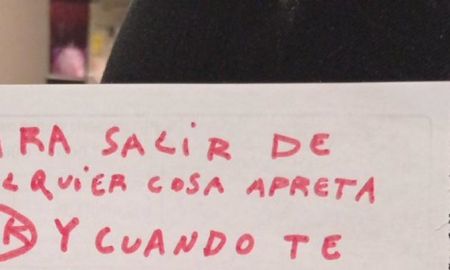 ARA SALIR DE
LQUIER COSA APRETA
R Y CUANDO TE